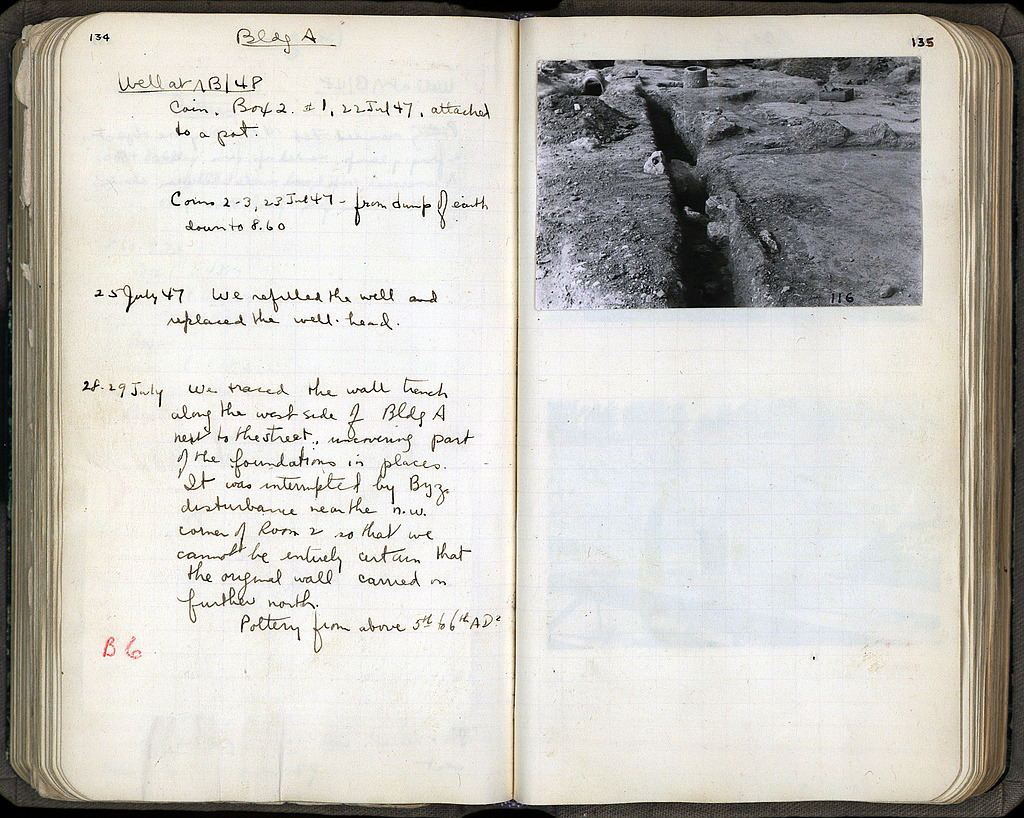 134
Bldg A
Well at AB/48
Coin. Box 2. #1, 22 Jul 47, attached
to a pot.
Coins 2-3, 23 Jul 47 - from dump of earth
down to 8.60
25 July 47 We refilled the well and
replaced the well-head.
28-29 July We traced the wall trench
along the west side of Bldg A
next to the street, uncovering part
of the foundations in places.
It was interrupted by Byz.
disturbance near the n.w.
corner of Room 2 so that we
cannot be entirely certain that
the original wall carried on
further north.
Pottery from above 5th to 6th AD
B 6
135
116